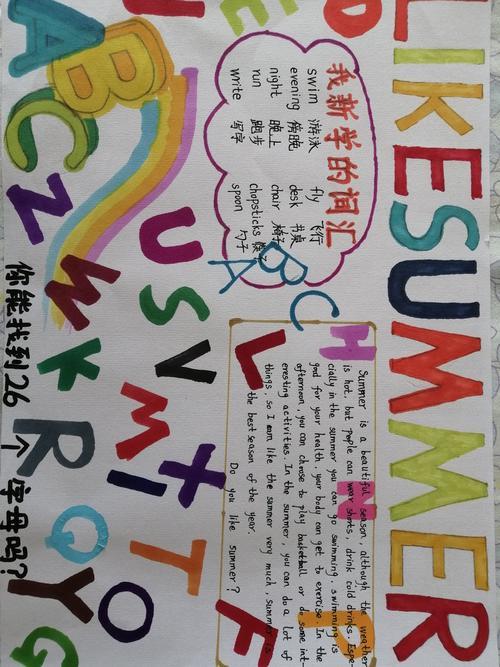 LIKE SUMMER
我新学的词汇
swim 游泳 fly 飞行
evening 傍晚 desk 书桌
night 晚上 chair 椅子
run 跑步 chopsticks 筷子
write 写字 spoon 勺子
Summer is a beautiful season, although the weather
is hot, but people can wear shorts, drink cold drinks. Espe-
cially in the summer you can go swimming, swimming is
good for your health, your body can get to exercise. In the
afternoon, you can choose to play basketball or do some int-
eresting activities. In the summer, you can do a lot of
things, so I am like the summer very much, summer is
the best season of the year.
Do you like summer?
A B C
H
L
F
U S V
M
I
X
T
O
A B C
Z
W
K
R
Q
Y
G
你能找到26个字母吗?